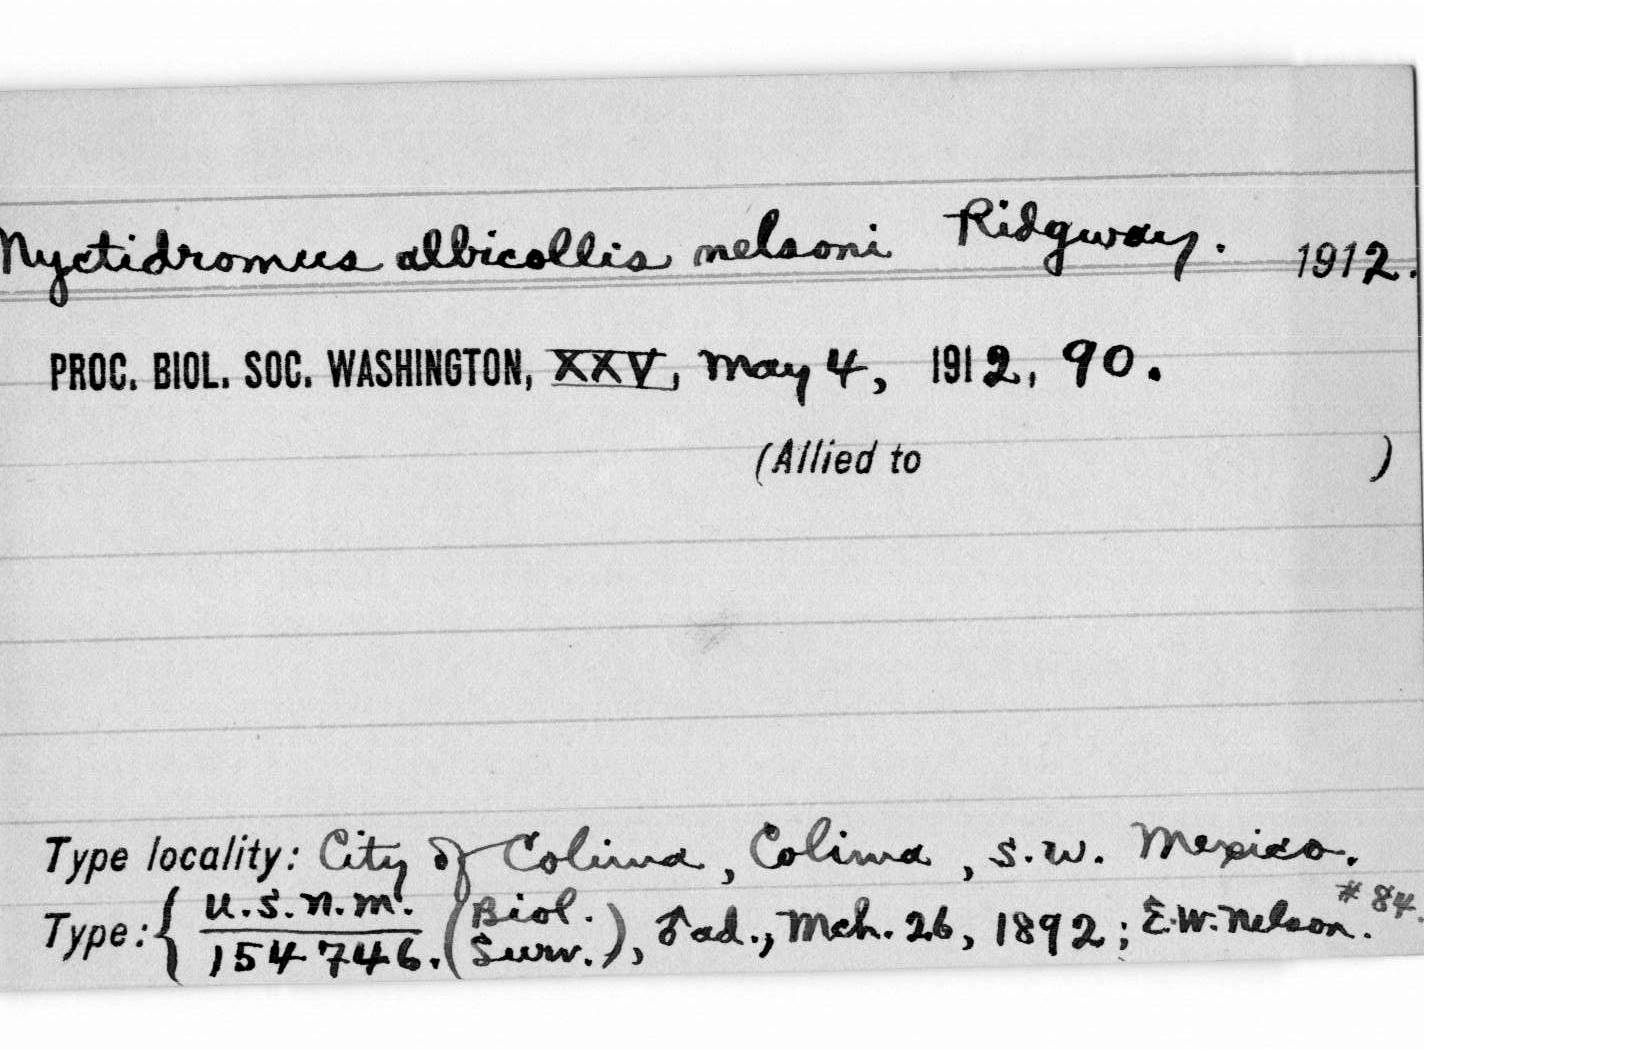 Nyctidromus albicollis nelsoni Ridgway. 1912.
PROC. BIOL. SOC. WASHINGTON, XXV, May 4, 1912, 90.
(Allied to )
Type locality: City of Colima, Colima, S.W. Mexico.
#84.
Type: { U.S.N.M. (Biol. ♂ ad., Mch. 26, 1892; E.W. Nelson.
154746. Surv.),